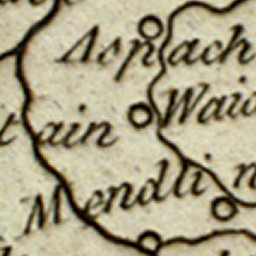 Aspach
Waid
tain
Mendlin